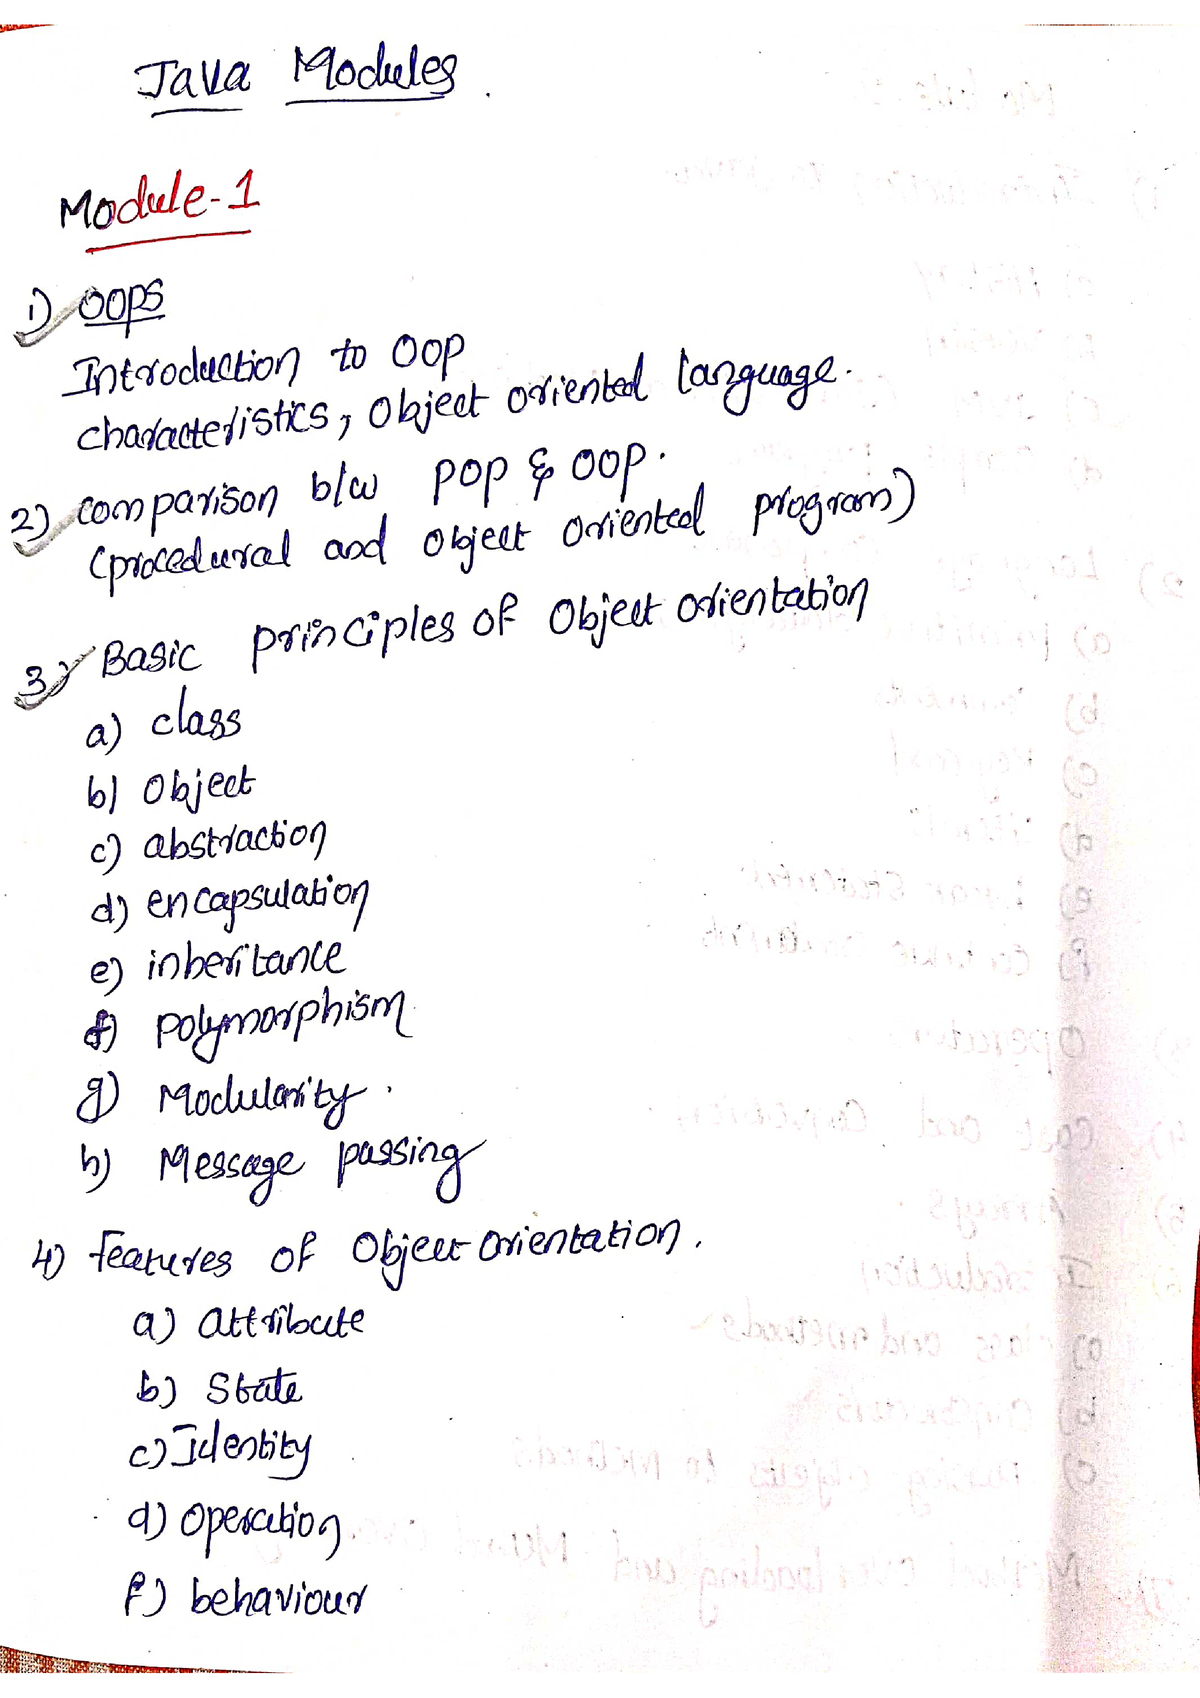 Java Modules.
Module-1
1) OOPS
Introduction to OOP
characteristics, Object oriented language.
2) comparison b/w POP & OOP.
(procedural and object oriented program)
3) Basic principles of Object orientation
a) class
b) Object
c) abstraction
d) encapsulation
e) inheritance
f) polymorphism
g) Modularity.
h) Message passing
4) features of Object orientation.
a) attribute
b) State
c) Identity
d) operation
f) behaviour